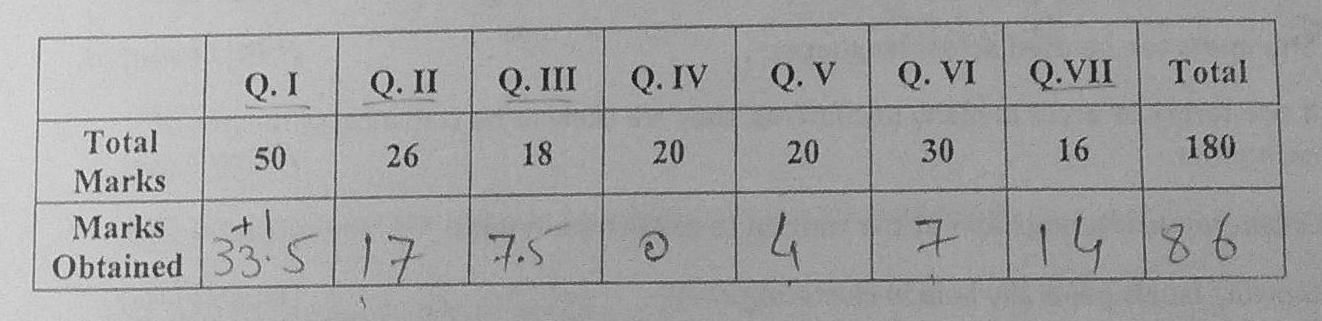 Q. I Q. II Q. III Q. IV Q. V Q. VI Q.VII Total
Total Marks 50 26 18 20 20 30 16 180
Marks Obtained +1 33.5 17 7.5 0 4 7 14 86